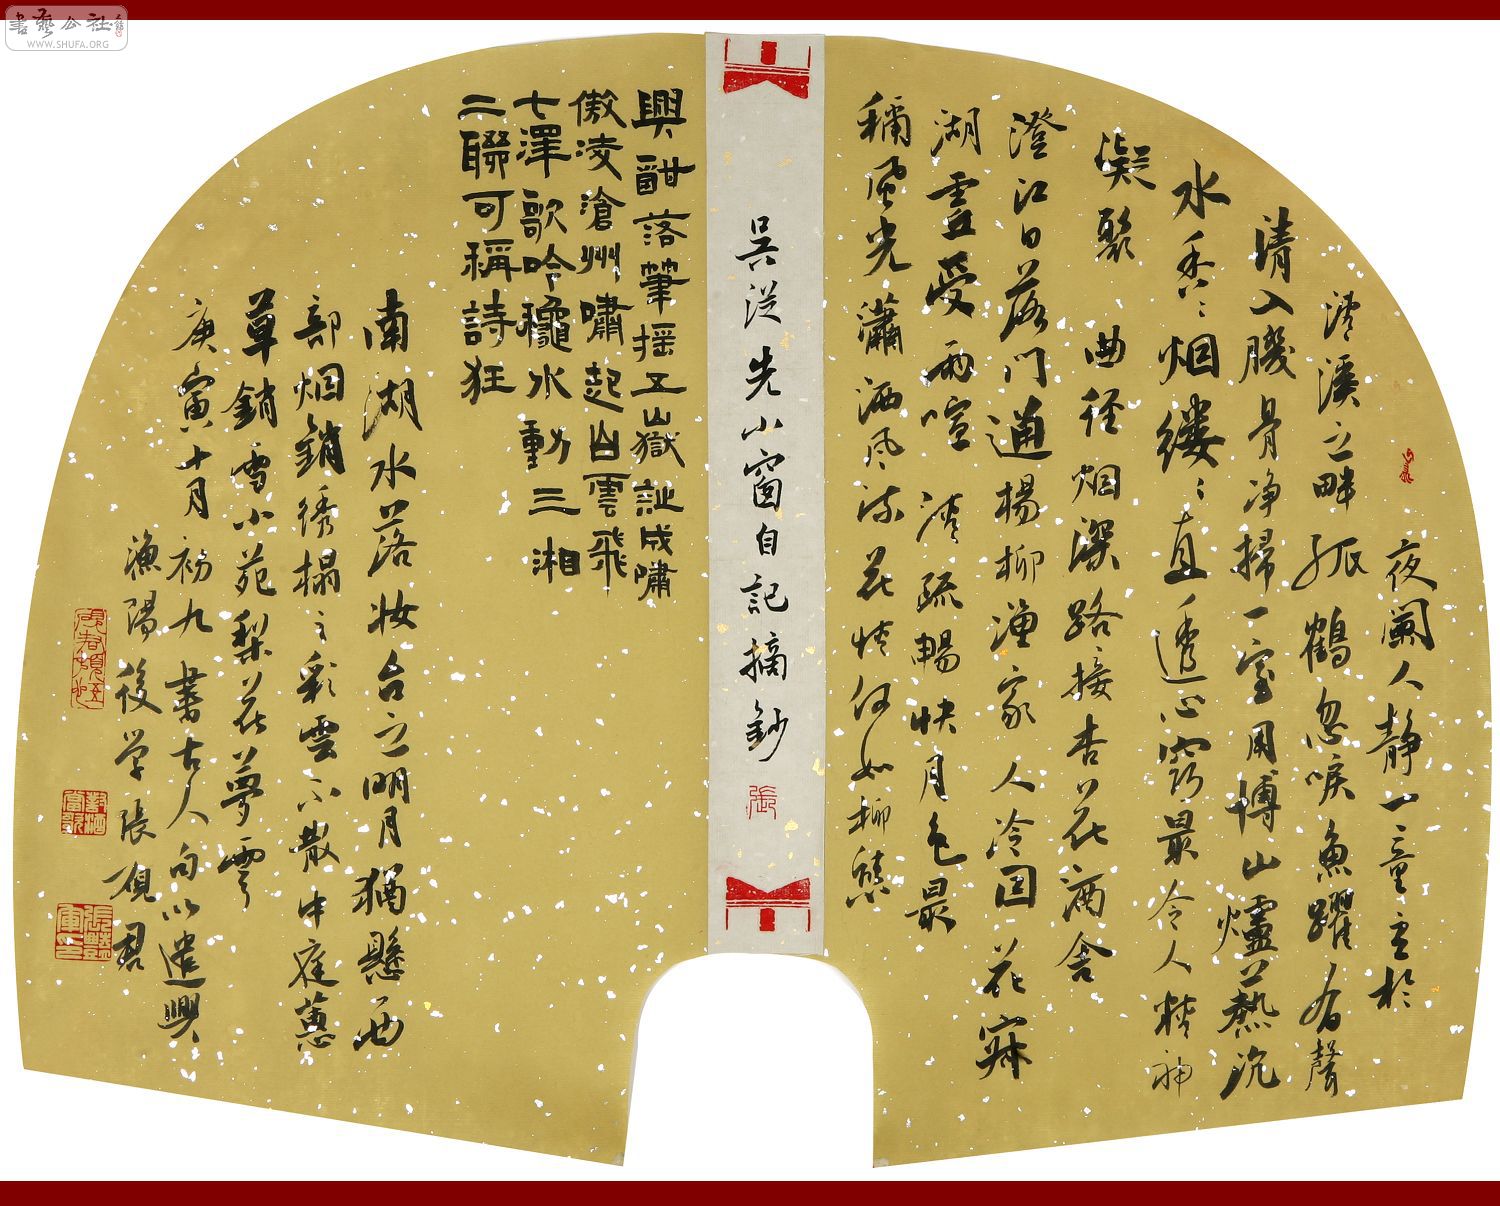 書藝公社
WWW.SHUFA.ORG
夜闌人静一童立於
清溪之畔孤鶴忽唳魚躍有聲
清入肌骨净掃一室用博山爐爇沉
水香:烟縷:直透心窍最令人精神
凝聚 曲徑烟深路接杏花酒舍
澄江日落門通楊柳漁家 人冷因花寐
湖虚受雨喧 清疏暢快月色最
稱風光瀟洒風流花情何如柳態
吳從先小窗自記摘鈔
張
興酣落筆摇五嶽詩成嘯
傲凌滄州嘯起白雲飛
七澤歌吟穐水動三湘
二聯可稱詩狂
南湖水落妝台之明月猶懸西
部烟銷綉榻之彩雲不散中庭蕙
草銷雪小苑梨花夢雲
庚寅十月初九書古人句以遣興
漁陽後学張硯君